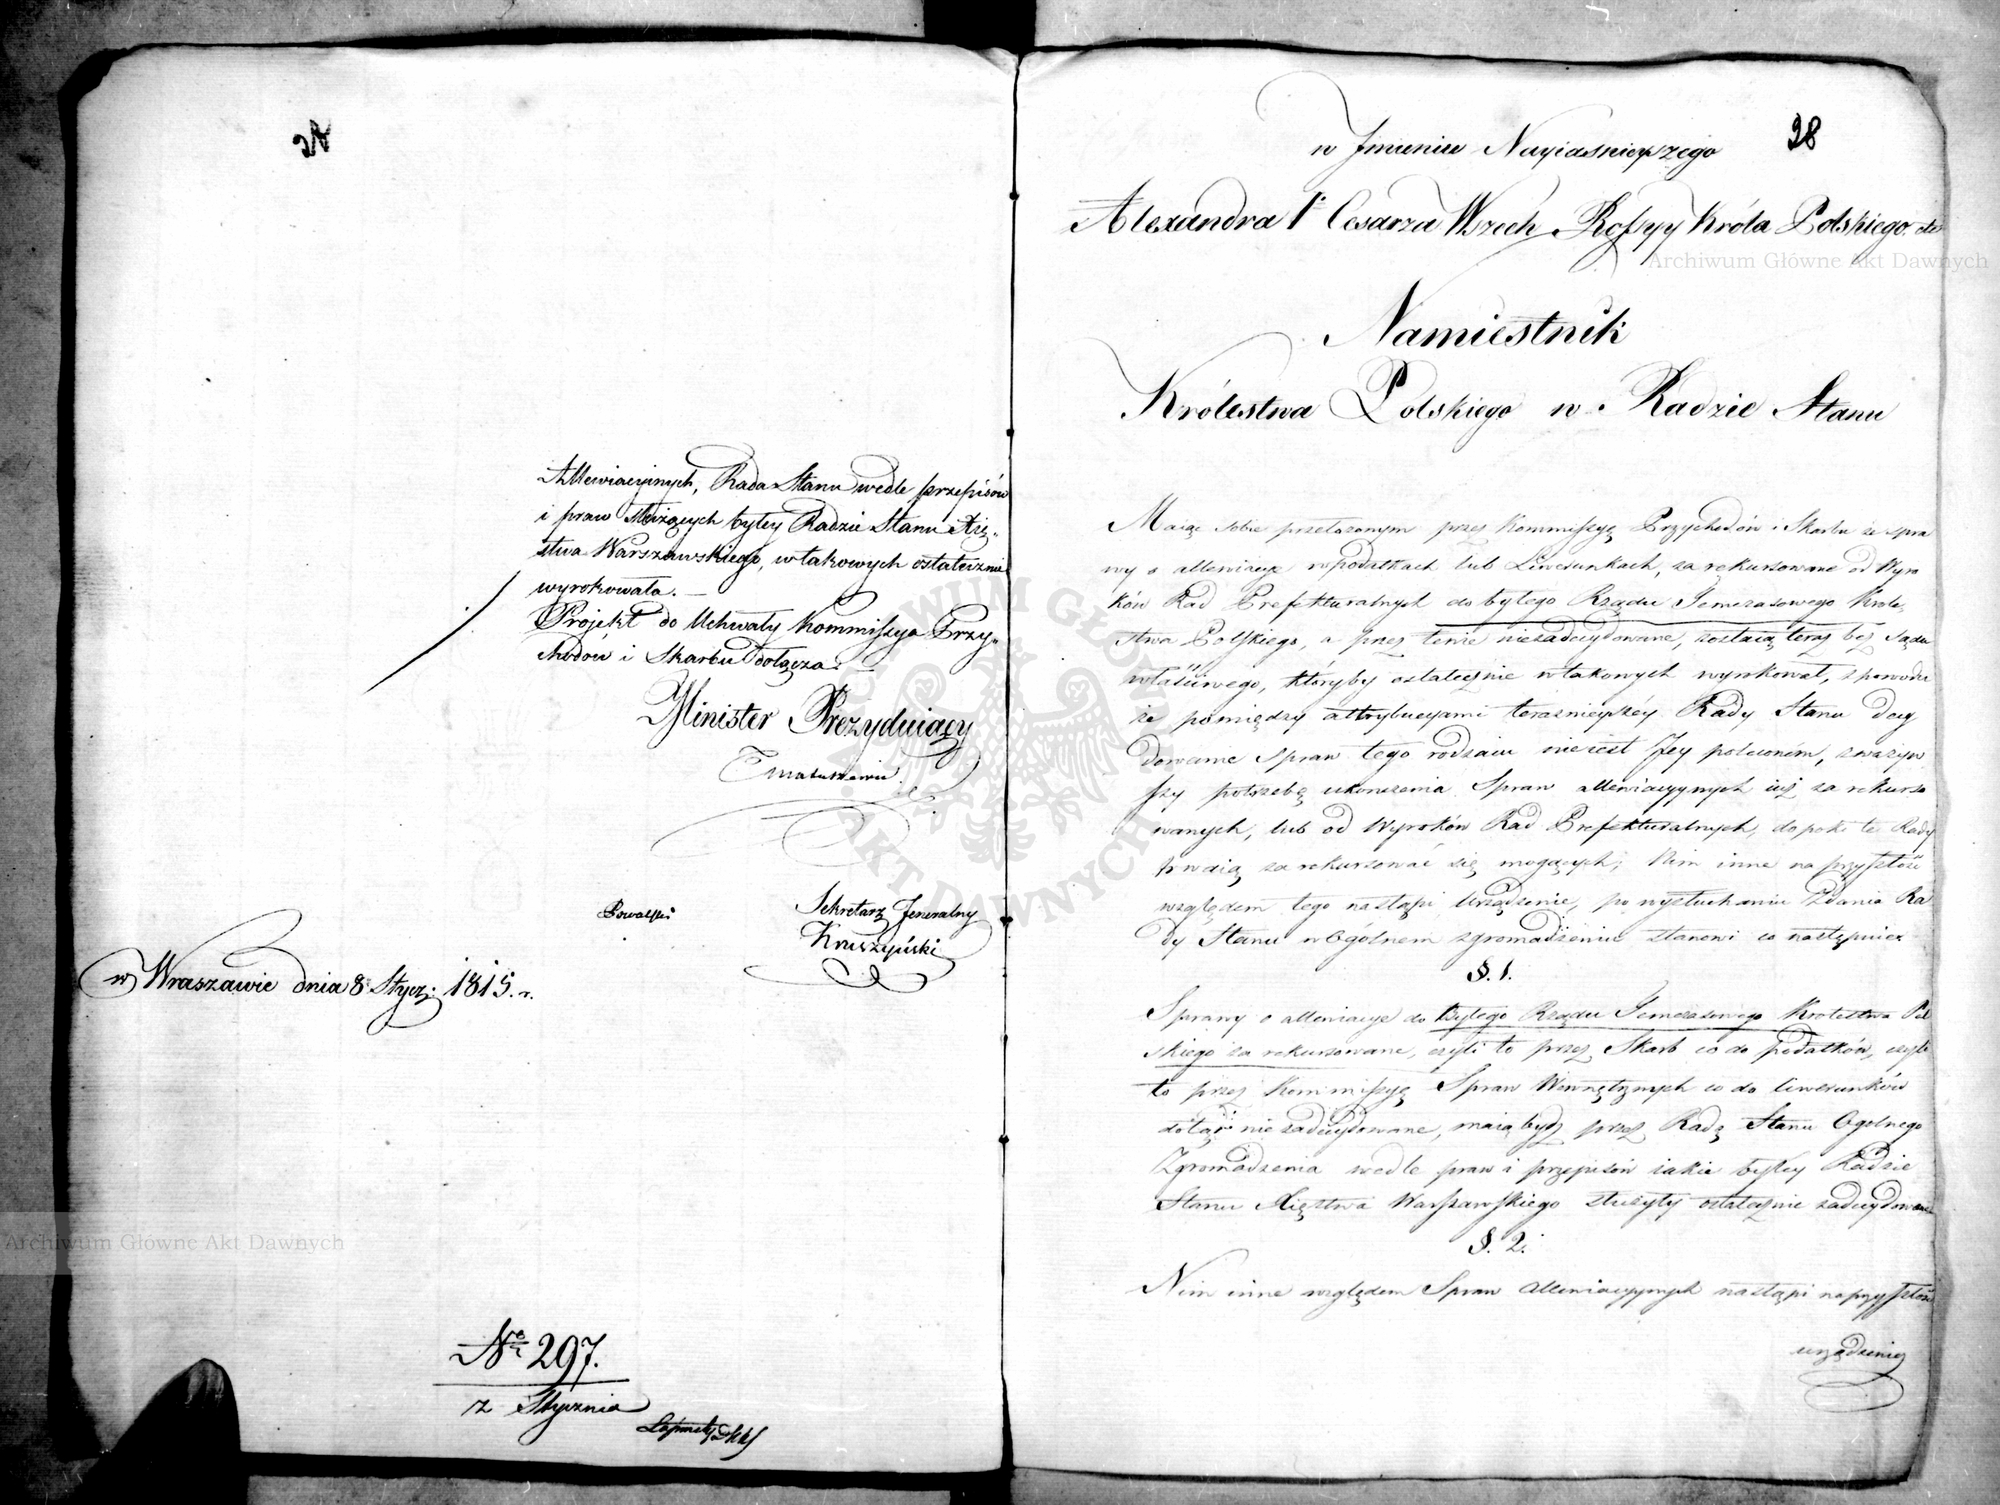 28
Allewiacyinych, Rada Stanu wedle przepisów
i praw służących byłey Radzie Stanu Xię-
stwa Warszawskiego, w takowych ostatecznie
wyrokowała. —
Projekt do Uchwały Kommissya Przy-
chodów i Skarbu dołącza. —
Minister Prezyduiący
Sekretarz Jeneralny
Kruszyński
w Wraszawie dnia 8 Stycz: 1815. r.
No 297.
z Stycznia
28
w Jmieniu Nayiasnieyszego
Alexandra 1o Cesarza Wszech Rossyy Króla Polskiego etc
Namiestnik
Królestwa Polskiego w Radzie Stanu
Maiąc sobie przełożonym przez Kommissyą Przychodów i Skarbu że spra
wy o allewiacye w podatkach lub Liwerunkach, zarekursowane od Wyro
ków Rad Prefekturalnych do byłego Rządu Temczasowego Krole,
stwa Polskiego, a przez tenże niezadecydowane, zostaią teraz bez Sądu
właściwego, któryby ostatecznie w takowych wyrokował, z powodu
że pomiędzy attrybucyami teraznieyszéy Rady Stanu decy
dowanie Spraw tego rodzaiu nie iest Jey poleconém, zważyw
szy potrzebę ukończenia Spraw allewiacyynych iuż zarekurso
wanych, lub od Wyroków Rad Prefekturalnych, dopoki te Rady
trwaią zarekursować się mogących; Nim inne na przyszłość
względem tego nastąpi Urządzenie, po wysłuchaniu Zdania Ra
dy Stanu w Ogólnem zgromadzeniu stanowi co następuie
§. 1.
Sprawy o allewiacye do byłego Rządu Temczasowego Krolestwa Pol
skiego zarekursowane, czyli to przez Skarb co do podatków, czyli
to przez Kommissyą Spraw Wewnętrznych co do liwerunków
dotąd niezadecydowane, maią bydź przez Radę Stanu Ogolnego
Zgromadzenia wedle praw i przepisów iakie byłey Radzie
Stanu Xięstwa Warszawskiego służyły ostatecznie zadecydowane
§. 2.
Nim inne względem Spraw allewiacyynych nastąpi na przyszłość
urządzenie
Archiwum Główne Akt Dawnych
Archiwum Główne Akt Dawnych
ARCHIWUM GŁÓWNE AKT DAWNYCH